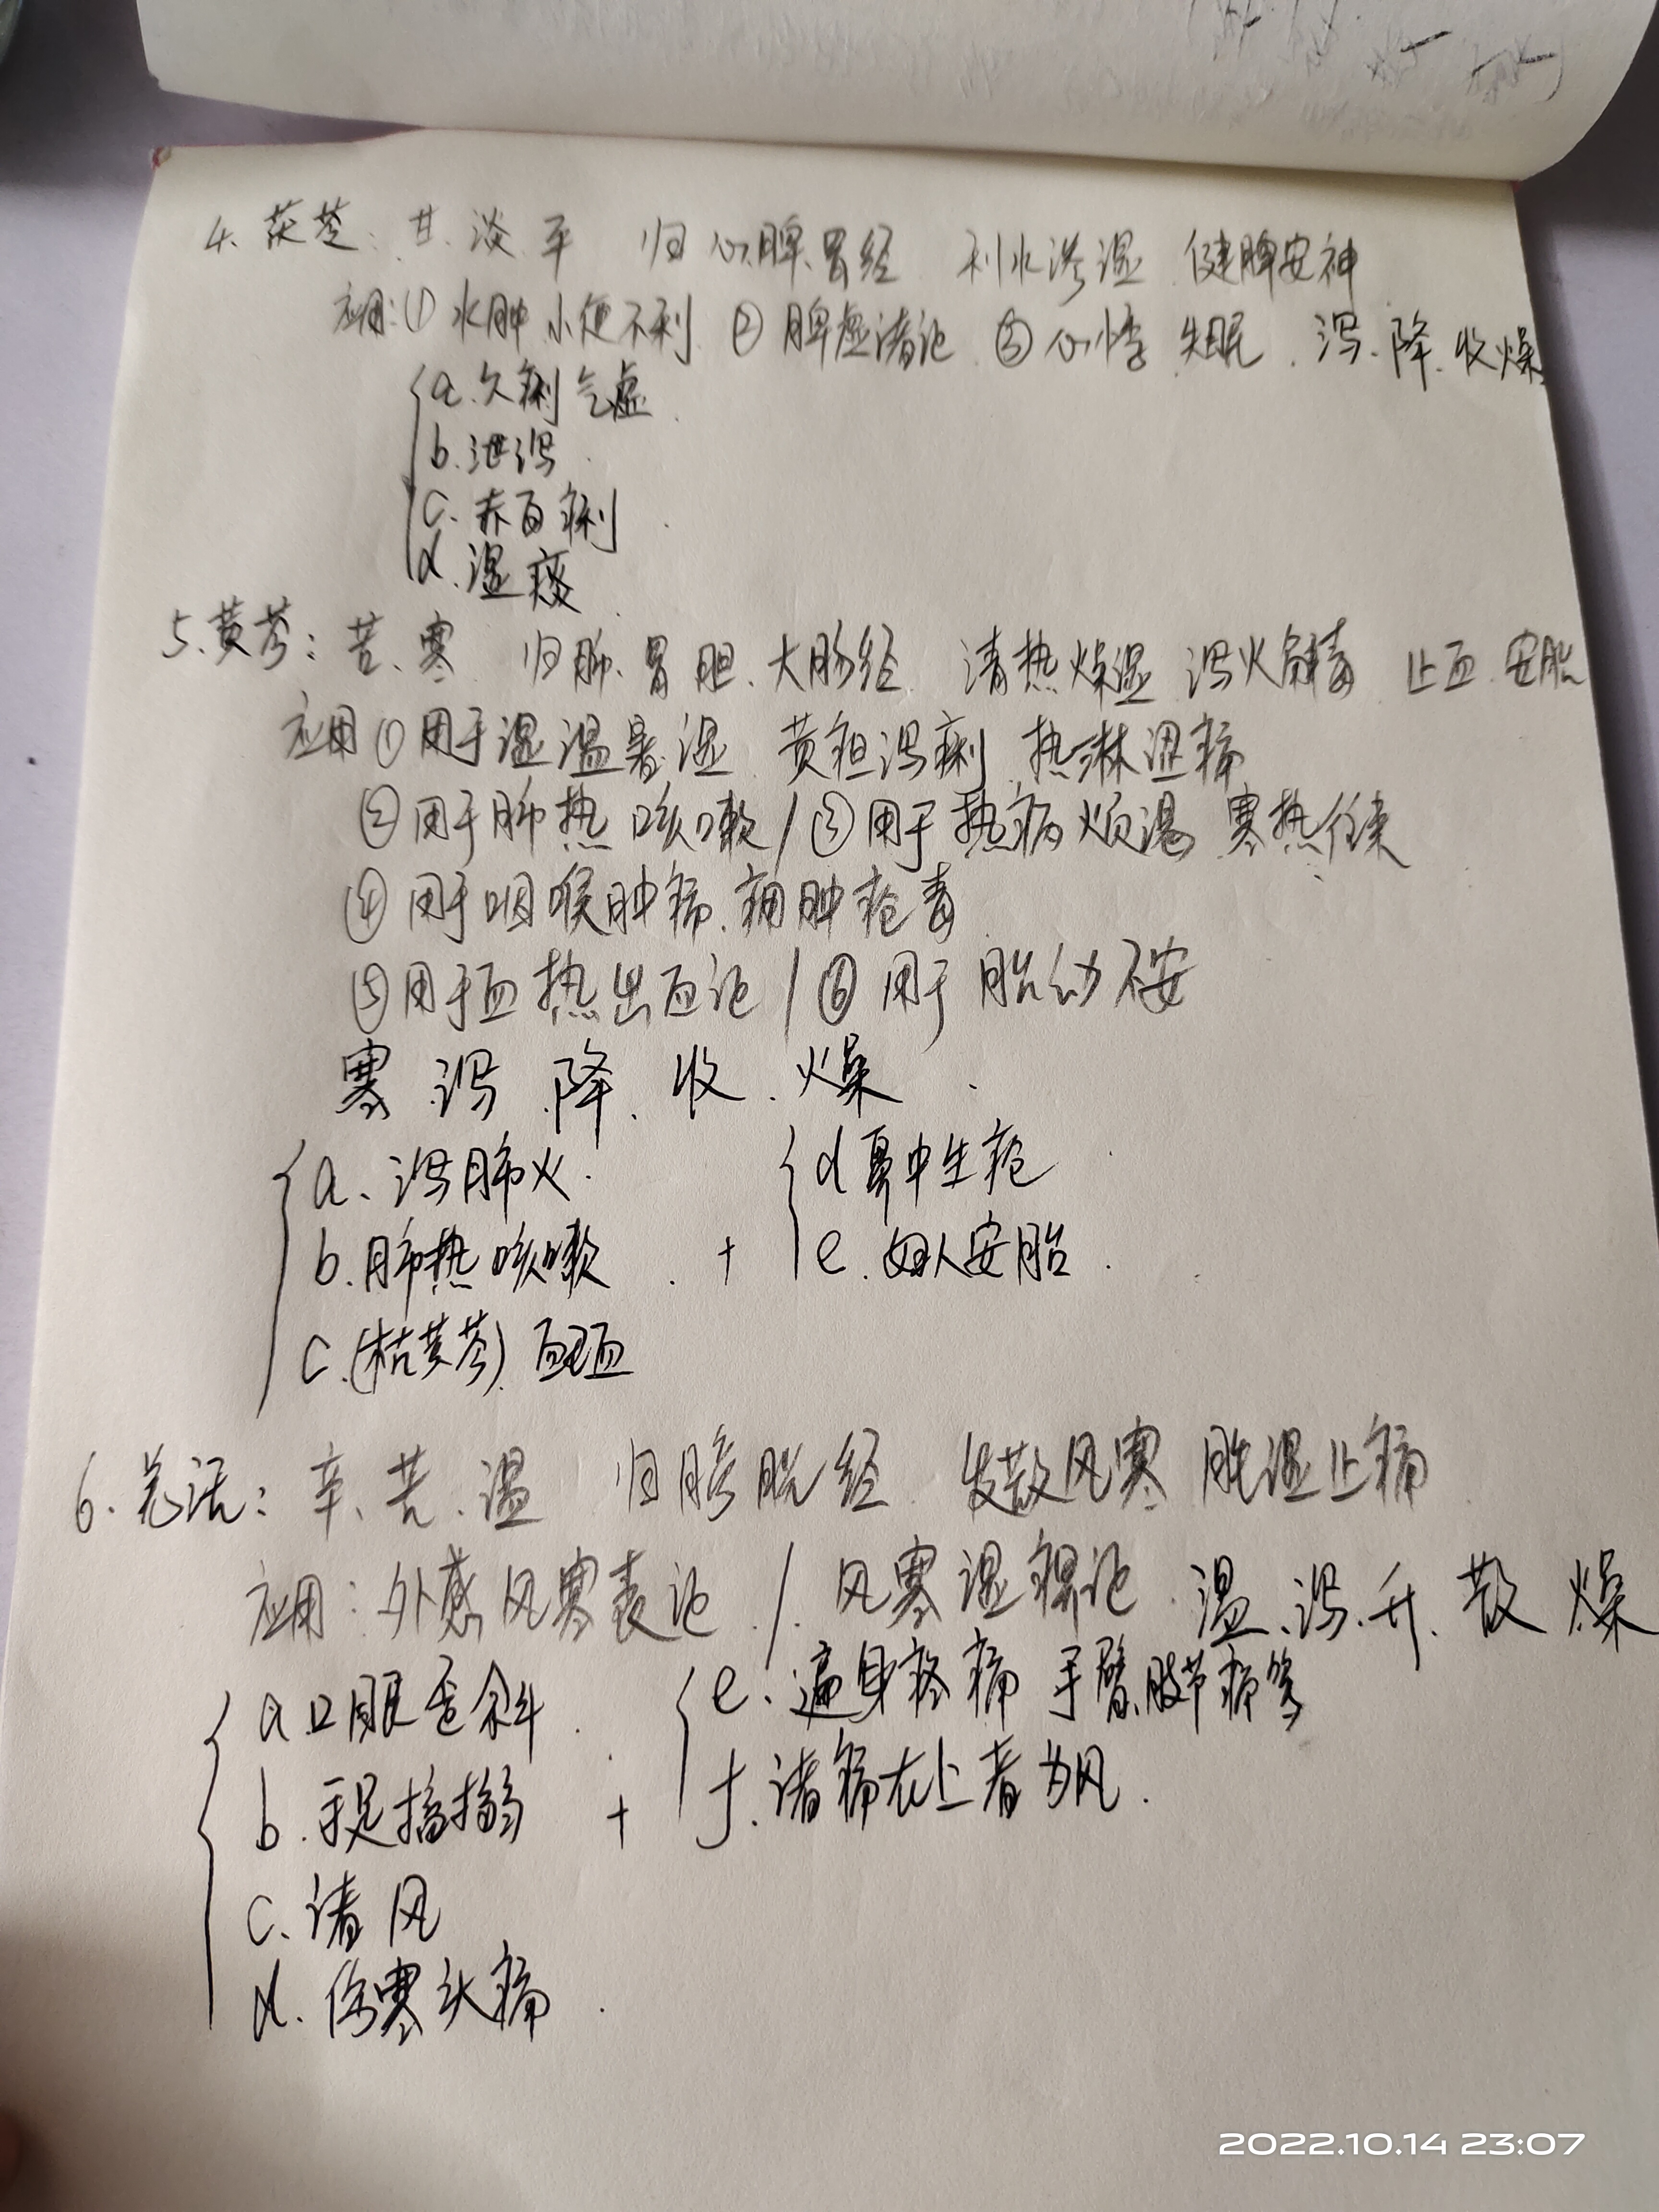 4. 茯苓：甘、淡、平 归心、脾、胃经 利水渗湿 健脾安神
应用：① 水肿 小便不利 ② 脾虚诸证 ③ 心悸 失眠 . 泻、降、收 燥
a. 久痢气虚
b. 泄泻
c. 赤白痢
d. 湿痰
5. 黄芩：苦、寒 归肺、胃 胆、大肠经 清热燥湿 泻火解毒 止血 安胎
应用 ① 用于湿温暑湿 黄疸泻痢 热淋涩痛
② 用于肺热 咳嗽 / ③ 用于热病烦渴 寒热往来
④ 用于咽喉肿痛、痈肿疮毒
⑤ 用于血热出血证 / ⑥ 用于 胎动不安
寒 泻 降、收、燥
a、泻肺火. d 鼻中生疮
b. 肺热咳嗽 . + e. 妇人安胎 .
c. (枯黄芩)
6. 羌活：辛、苦、温 归膀胱经 发散风寒 胜湿止痛
应用：外感风寒表证 / 风寒湿痹证 . 温、泻、升、散 燥
a 口眼歪斜 . e. 遍身疼痛 手臂肢节痛等
b. 手足搐搦 + f. 诸痛在上者为风.
c. 诸风
d. 伤寒头痛 .
2022.10.14 23:07